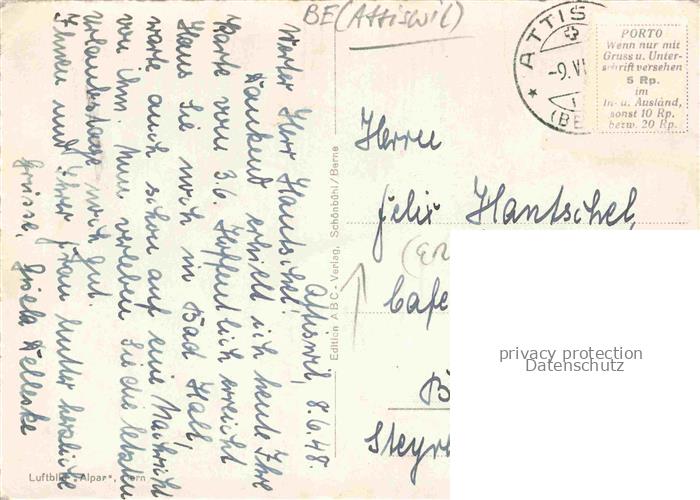 BE (Attiswil)
ATTIS
-9.VI
(BE
PORTO
Wenn nur mit
Gruss u. Unter-
schrift versehen
5 Rp.
im
In- u. Ausland,
sonst 10 Rp.
bezw. 20 Rp.
Attiswil, 8.6.48.
Werter Herr Hantschel!
Dankend erhielt ich heute Ihre
Karte vom 3.6. Hoffentlich erreicht
Sie noch in Bad Hall!
warte auch schon auf eine Nachricht
von ihm. Nun verleben Sie die letzten
Urlaubstage noch gut.
Ihnen und Ihrer Frau Mutter herzliche
Grüsse,
Edition ABC-Verlag, Schönbühl/Berne
Luftbild „Alpar", Bern
Herrn
Felix Hantschel,
Cafe
B
Steyr
privacy protection
Datenschutz